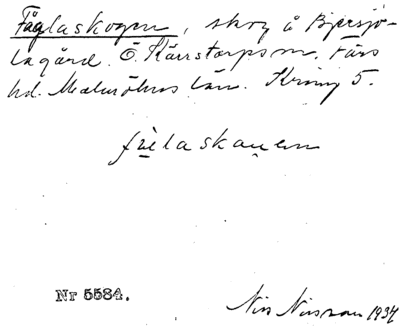 Fåglaskogen, skog å Bjersjö-
lagård. Ö. Kärrstorps sn. Färs
hd. Malmöhus län. Krony 5.
fúelaskau̯en
Nr 5584.
Nils Nilsson 1934